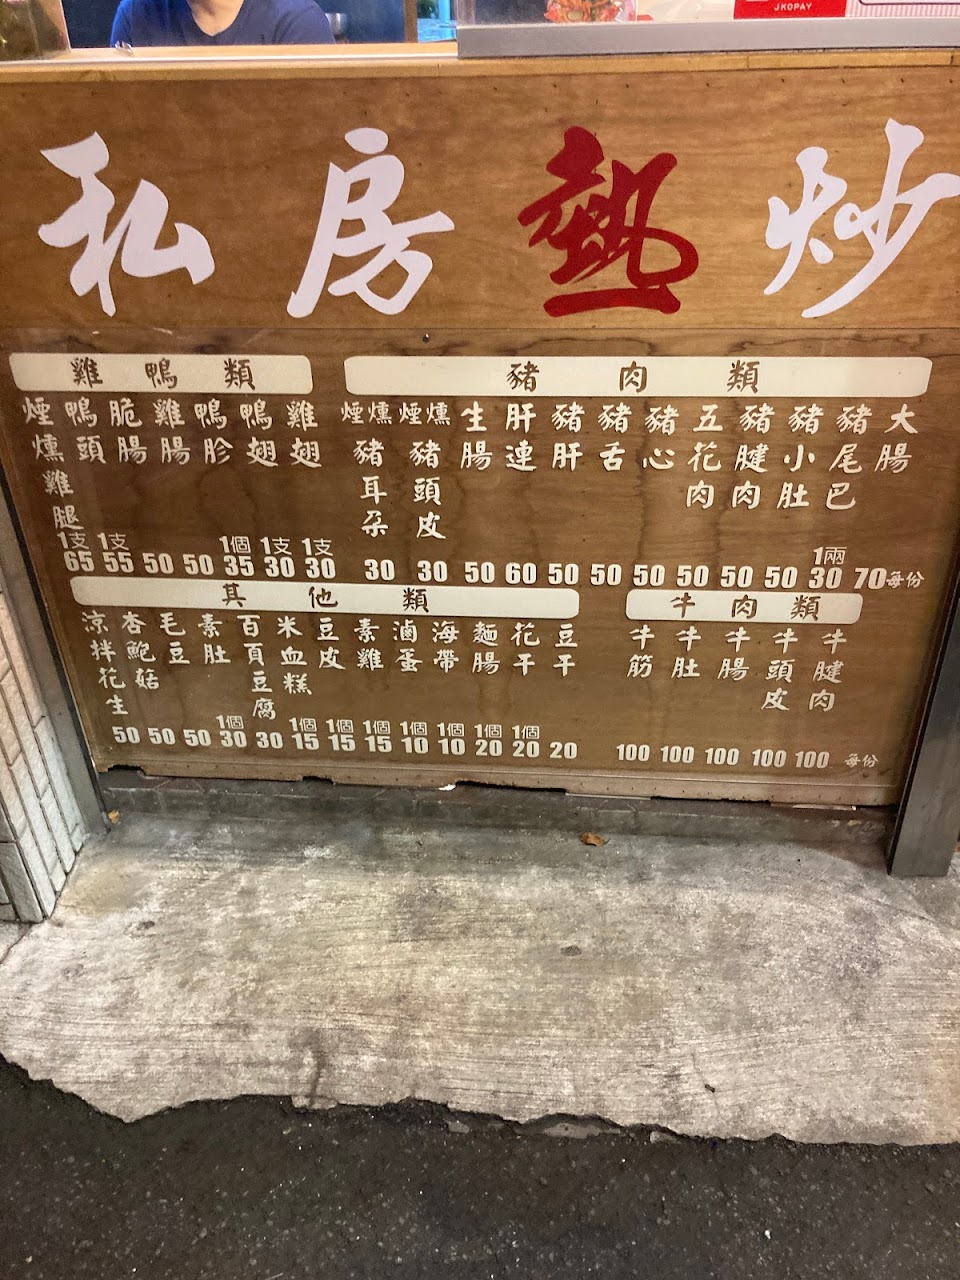 JKOPAY
私房熱炒
雞鴨類
煙燻雞腿 1支 65
鴨頭 1支 55
脆腸 50
雞腸 50
鴨胗 1個 35
鴨翅 1支 30
雞翅 1支 30
豬肉類
煙燻豬耳朵 30
煙燻豬頭皮 30
生腸 50
肝連 60
豬肝 50
豬舌 50
豬心 50
五花肉 50
豬腱肉 50
豬小肚 50
豬尾巴 1兩 30
大腸 70
每份
其他類
涼拌花生 50
杏鮑菇 50
毛豆 50
素肚 1個 30
百頁豆腐 30
米血糕 1個 15
豆皮 1個 15
素雞 1個 15
滷蛋 1個 10
海帶 1個 10
麵腸 1個 20
花干 1個 20
豆干 20
牛肉類
牛筋 100
牛肚 100
牛腸 100
牛頭皮 100
牛腱肉 100
每份